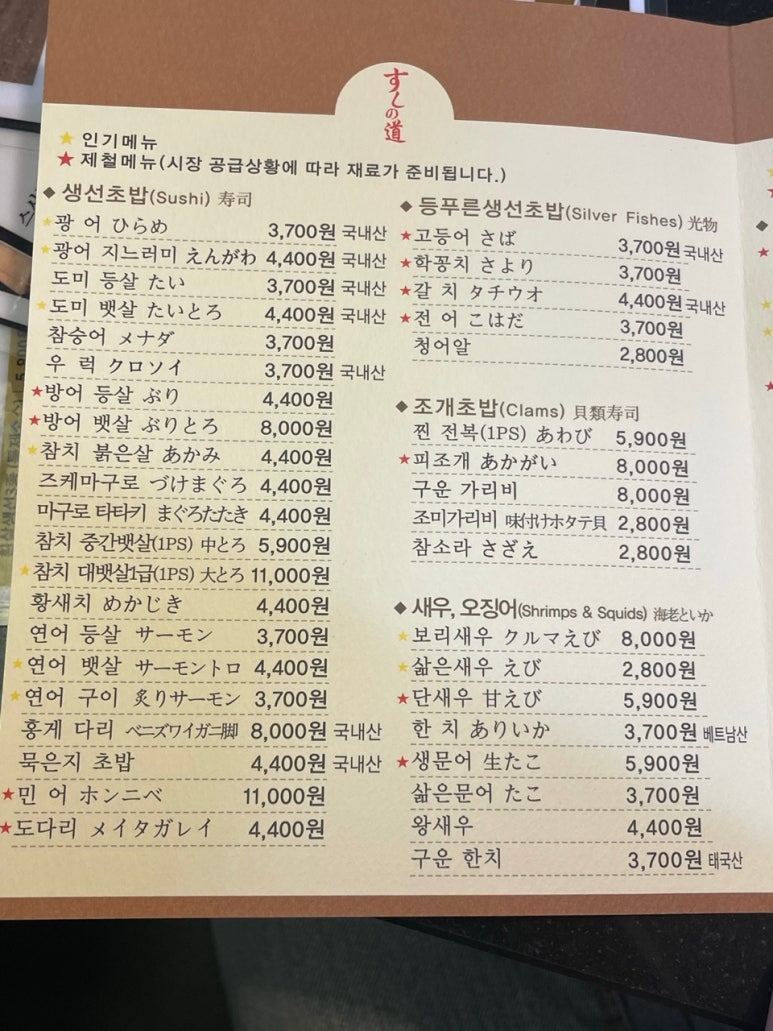 すしの道
★ 인기메뉴
★ 제철메뉴(시장 공급상황에 따라 재료가 준비됩니다.)
◆ 생선초밥(Sushi) 寿司
★광 어 ひらめ 3,700원 국내산
★광어 지느러미 えんがわ 4,400원 국내산
도미 등살 たい 3,700원 국내산
★도미 뱃살 たいとろ 4,400원 국내산
참숭어 メナダ 3,700원
우 럭 クロソイ 3,700원 국내산
★방어 등살 ぶり 4,400원
★방어 뱃살 ぶりとろ 8,000원
★참치 붉은살 あかみ 4,400원
즈케마구로 づけまぐろ 4,400원
마구로 타타키 まぐろたたき 4,400원
참치 중간뱃살(1PS) 中とろ 5,900원
★참치 대뱃살1급(1PS) 大とろ 11,000원
황새치 めかじき 4,400원
연어 등살 サーモン 3,700원
★연어 뱃살 サーモントロ 4,400원
★연어 구이 炙りサーモン 3,700원
홍게 다리 ベニズワイガニ脚 8,000원 국내산
묵은지 초밥 4,400원 국내산
★민 어 ホンニベ 11,000원
★도다리 メイタガレイ 4,400원
◆ 등푸른생선초밥(Silver Fishes) 光物
★고등어 さば 3,700원 국내산
★학꽁치 さより 3,700원
★갈 치 タチウオ 4,400원 국내산
★전 어 こはだ 3,700원
청어알 2,800원
◆ 조개초밥(Clams) 貝類寿司
찐 전복(1PS) あわび 5,900원
★피조개 あかがい 8,000원
구운 가리비 8,000원
조미가리비 味付けホタテ貝 2,800원
참소라 さざえ 2,800원
◆ 새우, 오징어(Shrimps & Squids) 海老といか
★보리새우 クルマえび 8,000원
★삶은새우 えび 2,800원
★단새우 甘えび 5,900원
한 치 ありいか 3,700원 베트남산
★생문어 生たこ 5,900원
삶은문어 たこ 3,700원
왕새우 4,400원
구운 한치 3,700원 태국산